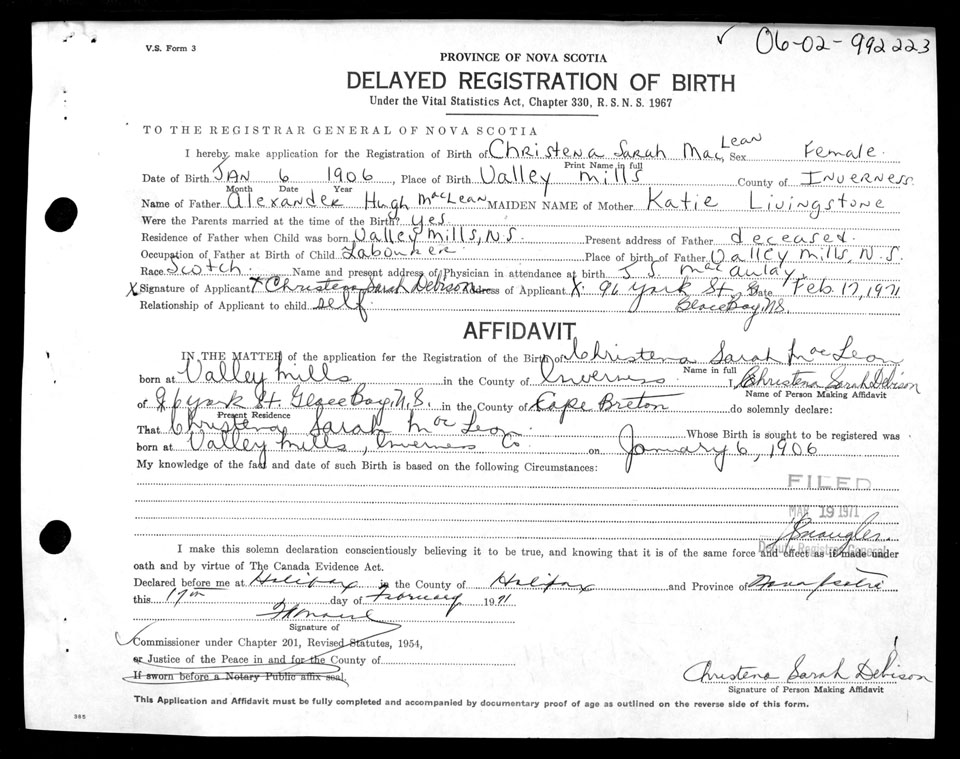 V.S. Form 3
✓ 06-02-992223
PROVINCE OF NOVA SCOTIA
DELAYED REGISTRATION OF BIRTH
Under the Vital Statistics Act, Chapter 330, R.S.N.S. 1967
TO THE REGISTRAR GENERAL OF NOVA SCOTIA
I hereby make application for the Registration of Birth of Christena Sarah MacLean, Sex Female.
Print Name in full
Date of Birth JAN 6 1906, Place of Birth Valley Mills County of Inverness
Month Date Year
Name of Father Alexander Hugh MacLean MAIDEN NAME of Mother Katie Livingstone
Were the Parents married at the time of the Birth? yes
Residence of Father when Child was born Valley Mills, N.S. Present address of Father deceased.
Occupation of Father at Birth of Child Labourer Place of birth of Father Valley Mills, N.S.
Race Scotch. Name and present address of Physician in attendance at birth J. S. MacAulay.
X Signature of Applicant X Christena Sarah Debison Address of Applicant X. 96 York St. Date Feb. 17, 1971
Relationship of Applicant to child self Glace Bay, N.S.
AFFIDAVIT
IN THE MATTER of the application for the Registration of the Birth of Christena Sarah MacLean
Name in full
born at Valley Mills in the County of Inverness. I, Christena Sarah Debison
Name of Person Making Affidavit
of 96 York St. Glace Bay, N.S. in the County of Cape Breton do solemnly declare:
Present Residence
That Christena Sarah MacLean Whose Birth is sought to be registered was
born at Valley Mills, Inverness Co on January 6, 1906
My knowledge of the fact and date of such Birth is based on the following Circumstances:
FILED
MAR 19 1971
Deputy Registrar General
I make this solemn declaration conscientiously believing it to be true, and knowing that it is of the same force and effect as if made under
oath and by virtue of The Canada Evidence Act.
Declared before me at Halifax in the County of Halifax and Province of Nova Scotia
this 17th day of February 1971
Signature of
Commissioner under Chapter 201, Revised Statutes, 1954,
or Justice of the Peace in and for the County of
If sworn before a Notary Public affix seal.
Christena Sarah Debison
Signature of Person Making Affidavit
This Application and Affidavit must be fully completed and accompanied by documentary proof of age as outlined on the reverse side of this form.
365